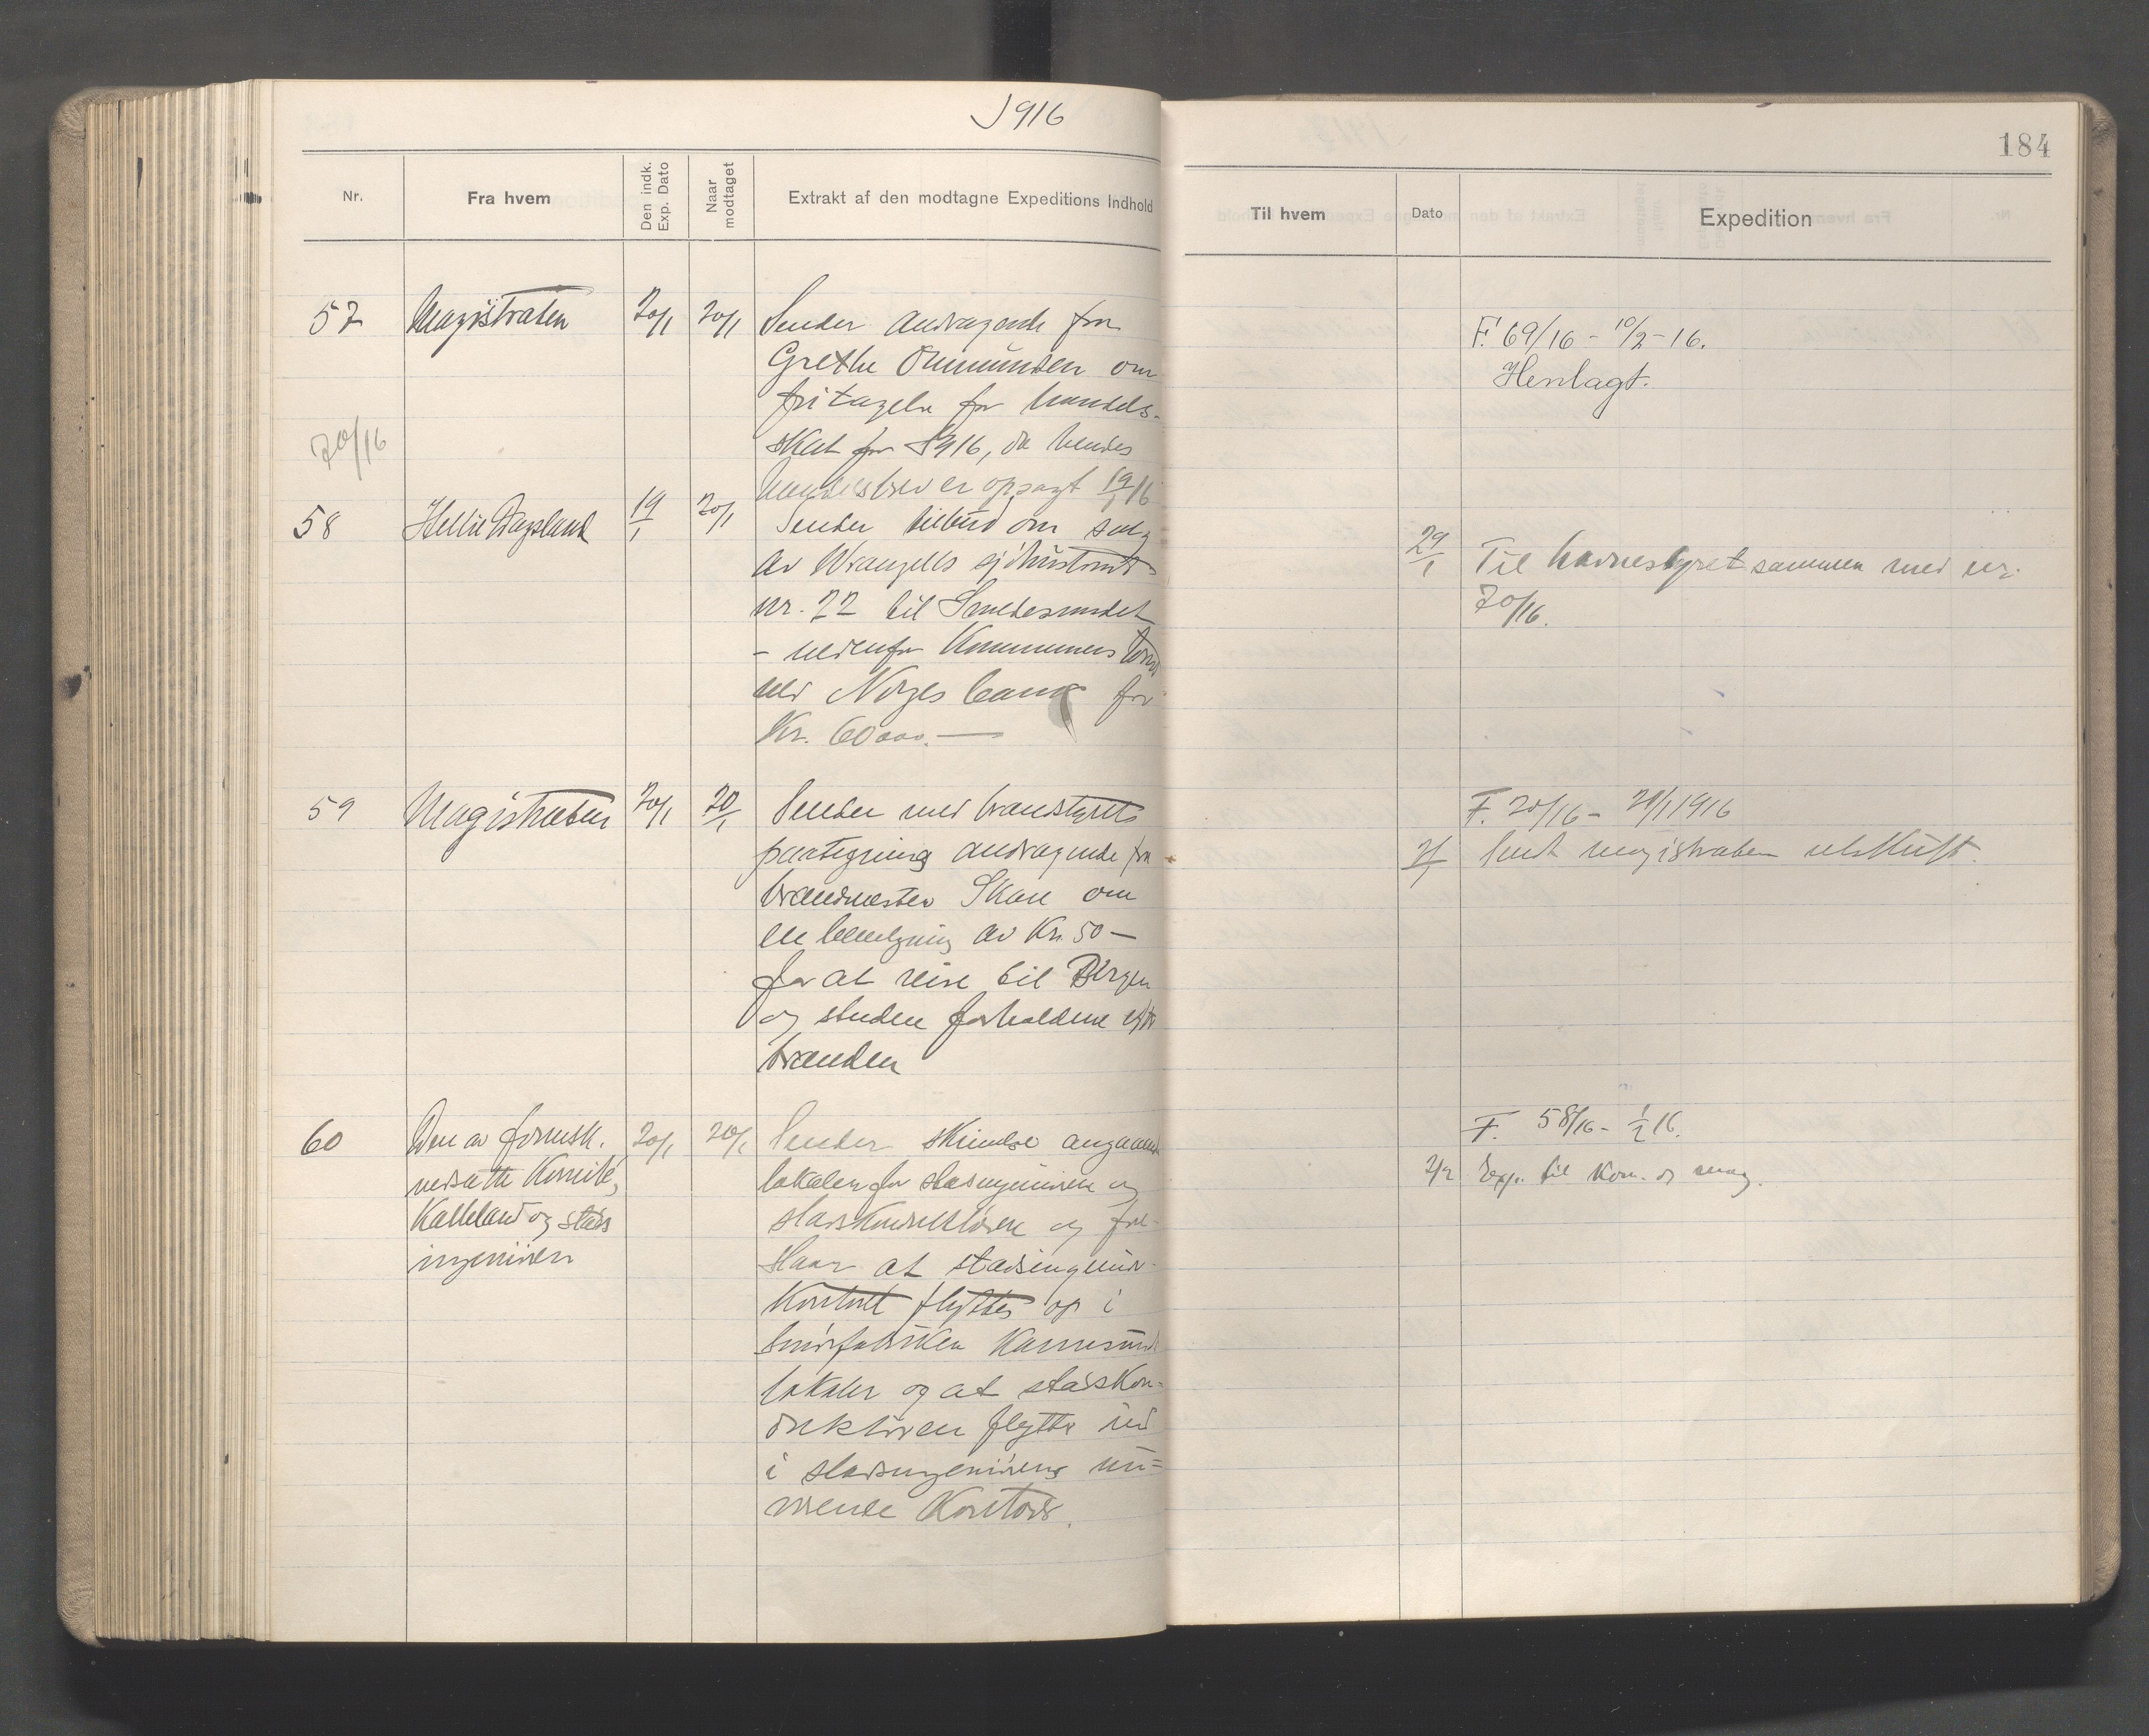 1916
184
Nr.
Fra hvem
Den indk. Exp. Dato
Naar modtaget
Extrakt af den modtagne Expeditions Indhold
Til hvem
Dato
Expedition
57 Magistraten 20/1 20/1 Sender andragende fra
Grethe Ommundsen om
fritagelse for handels-
skat for 1916, da hendes
handelsbrev er opsagt 19/1 16
F. 69/16 - 10/2-16.
Henlagt.
70/16
58 Hellik 19/1 20/1 Sender tilbud om salg
av Wrangells sjøhustomt
nr. 22 til Smedesundet
- nedenfor Kommunens tomt
ved Norges bank for
Kr. 60000.—
29/1 Til havnestyret sammen med nr.
70/16.
59 Magistraten 20/1 20/1 Sender med brandstyrets
paategning andragende fra
brandmester Skare om
en bevilgning av Kr. 50 —
for at reise til Bergen
og studere forholdene efter
branden
F. 20/16 - 20/1 1916
21/1 Sendt magistraten utskrift.
60 Den av formsk.
nedsatte Komite,
Kalleland og stads
ingeniøren
20/1 20/1 Sender skrivelse angaaende
lokaler for stadsingeniøren og
stadskonduktøren og fore-
slaar at stadsingeniør-
kontoret flyttes op i
Smørfabriken Karmsund
lokaler og at stadskon-
duktøren flytter ind
i stadsingeniørens nu-
værende Kontor.
F. 58/16 - 1/2 16.
2/2 Exp. til Kom. og mag.